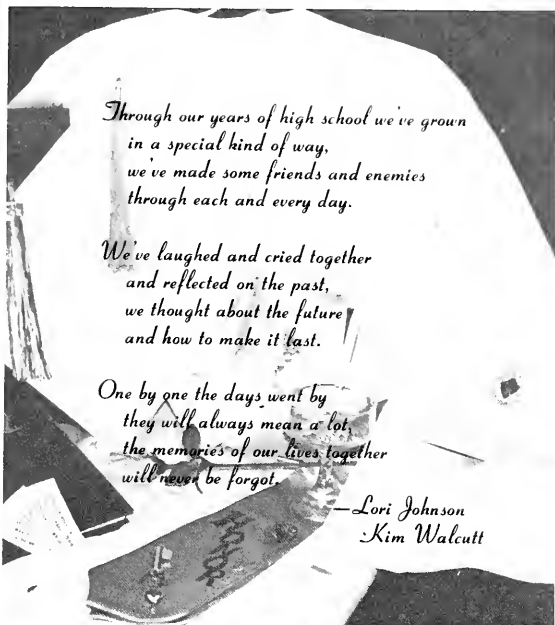 Through our years of high school we've grown
in a special kind of way,
we've made some friends and enemies
through each and every day.
We've laughed and cried together
and reflected on the past,
we thought about the future
and how to make it last.
One by one the days went by
they will always mean a lot,
the memories of our lives together
will never be forgot.
—Lori Johnson
Kim Walcutt